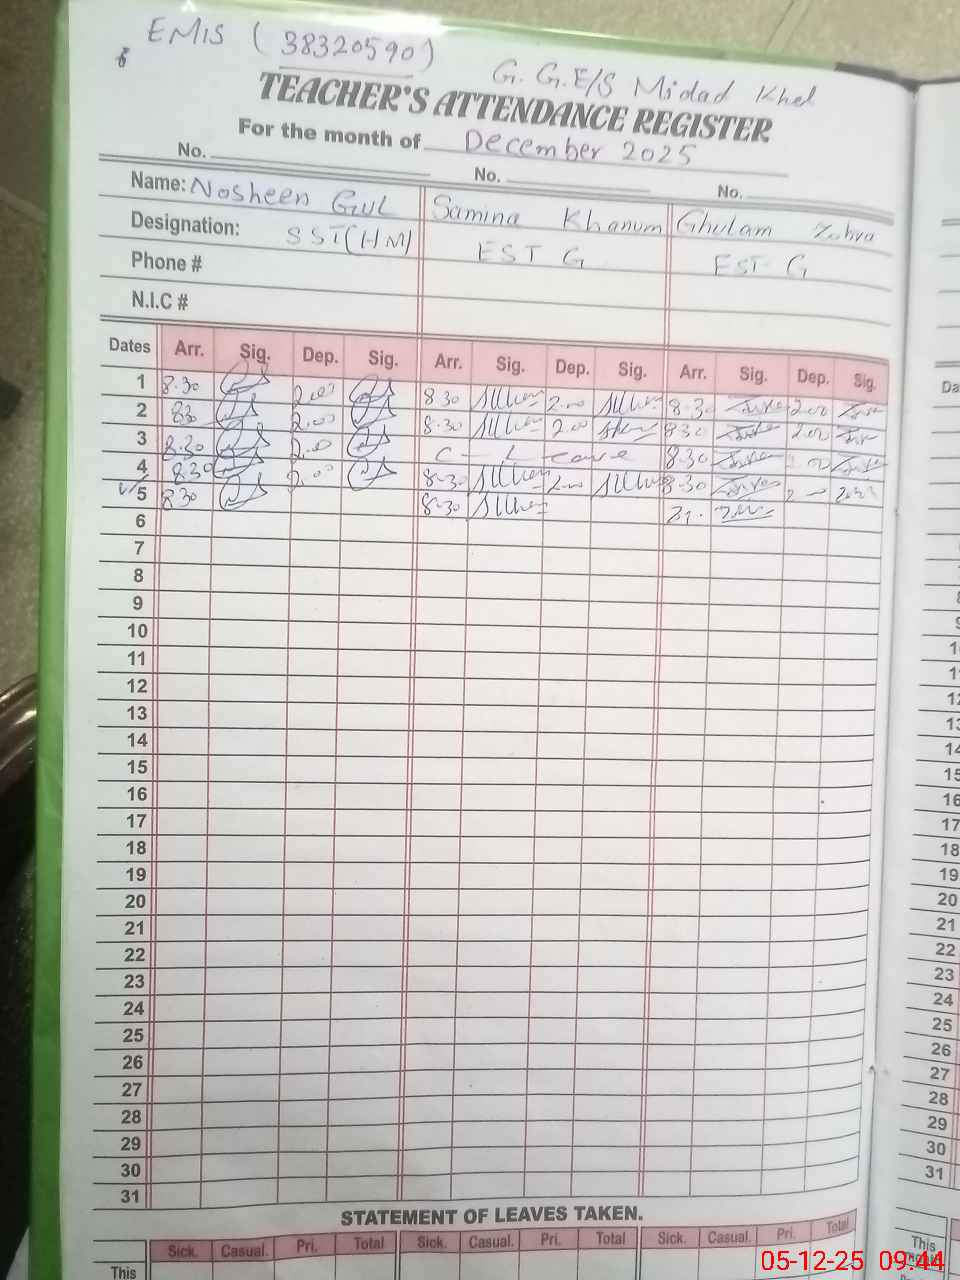 EMIS (38320590)
G. G.E/S Midad Khel
TEACHER'S ATTENDANCE REGISTER
For the month of December 2025
No. No. No.
Name: Nosheen Gul Samina Khanum Ghulam Zohra
Designation: SST(HM) EST G EST G
Phone #
N.I.C #
Dates Arr. Sig. Dep. Sig. Arr. Sig. Dep. Sig. Arr. Sig. Dep. Sig.
1 8.30 2.00 8.30 2.00 8.30 2.00
2 830 2.00 8.30 2.00 830 2.00
3 8.30 2.00 C - Leave 8.30
4 8.30 2.00 8.30 2.00 8.30
5 8.30 8.30
6
7
8
9
10
11
12
13
14
15
16
17
18
19
20
21
22
23
24
25
26
27
28
29
30
31
STATEMENT OF LEAVES TAKEN.
Sick. Casual. Pri. Total Sick. Casual. Pri. Total Sick. Casual. Pri. Total
This
05-12-25 09:44